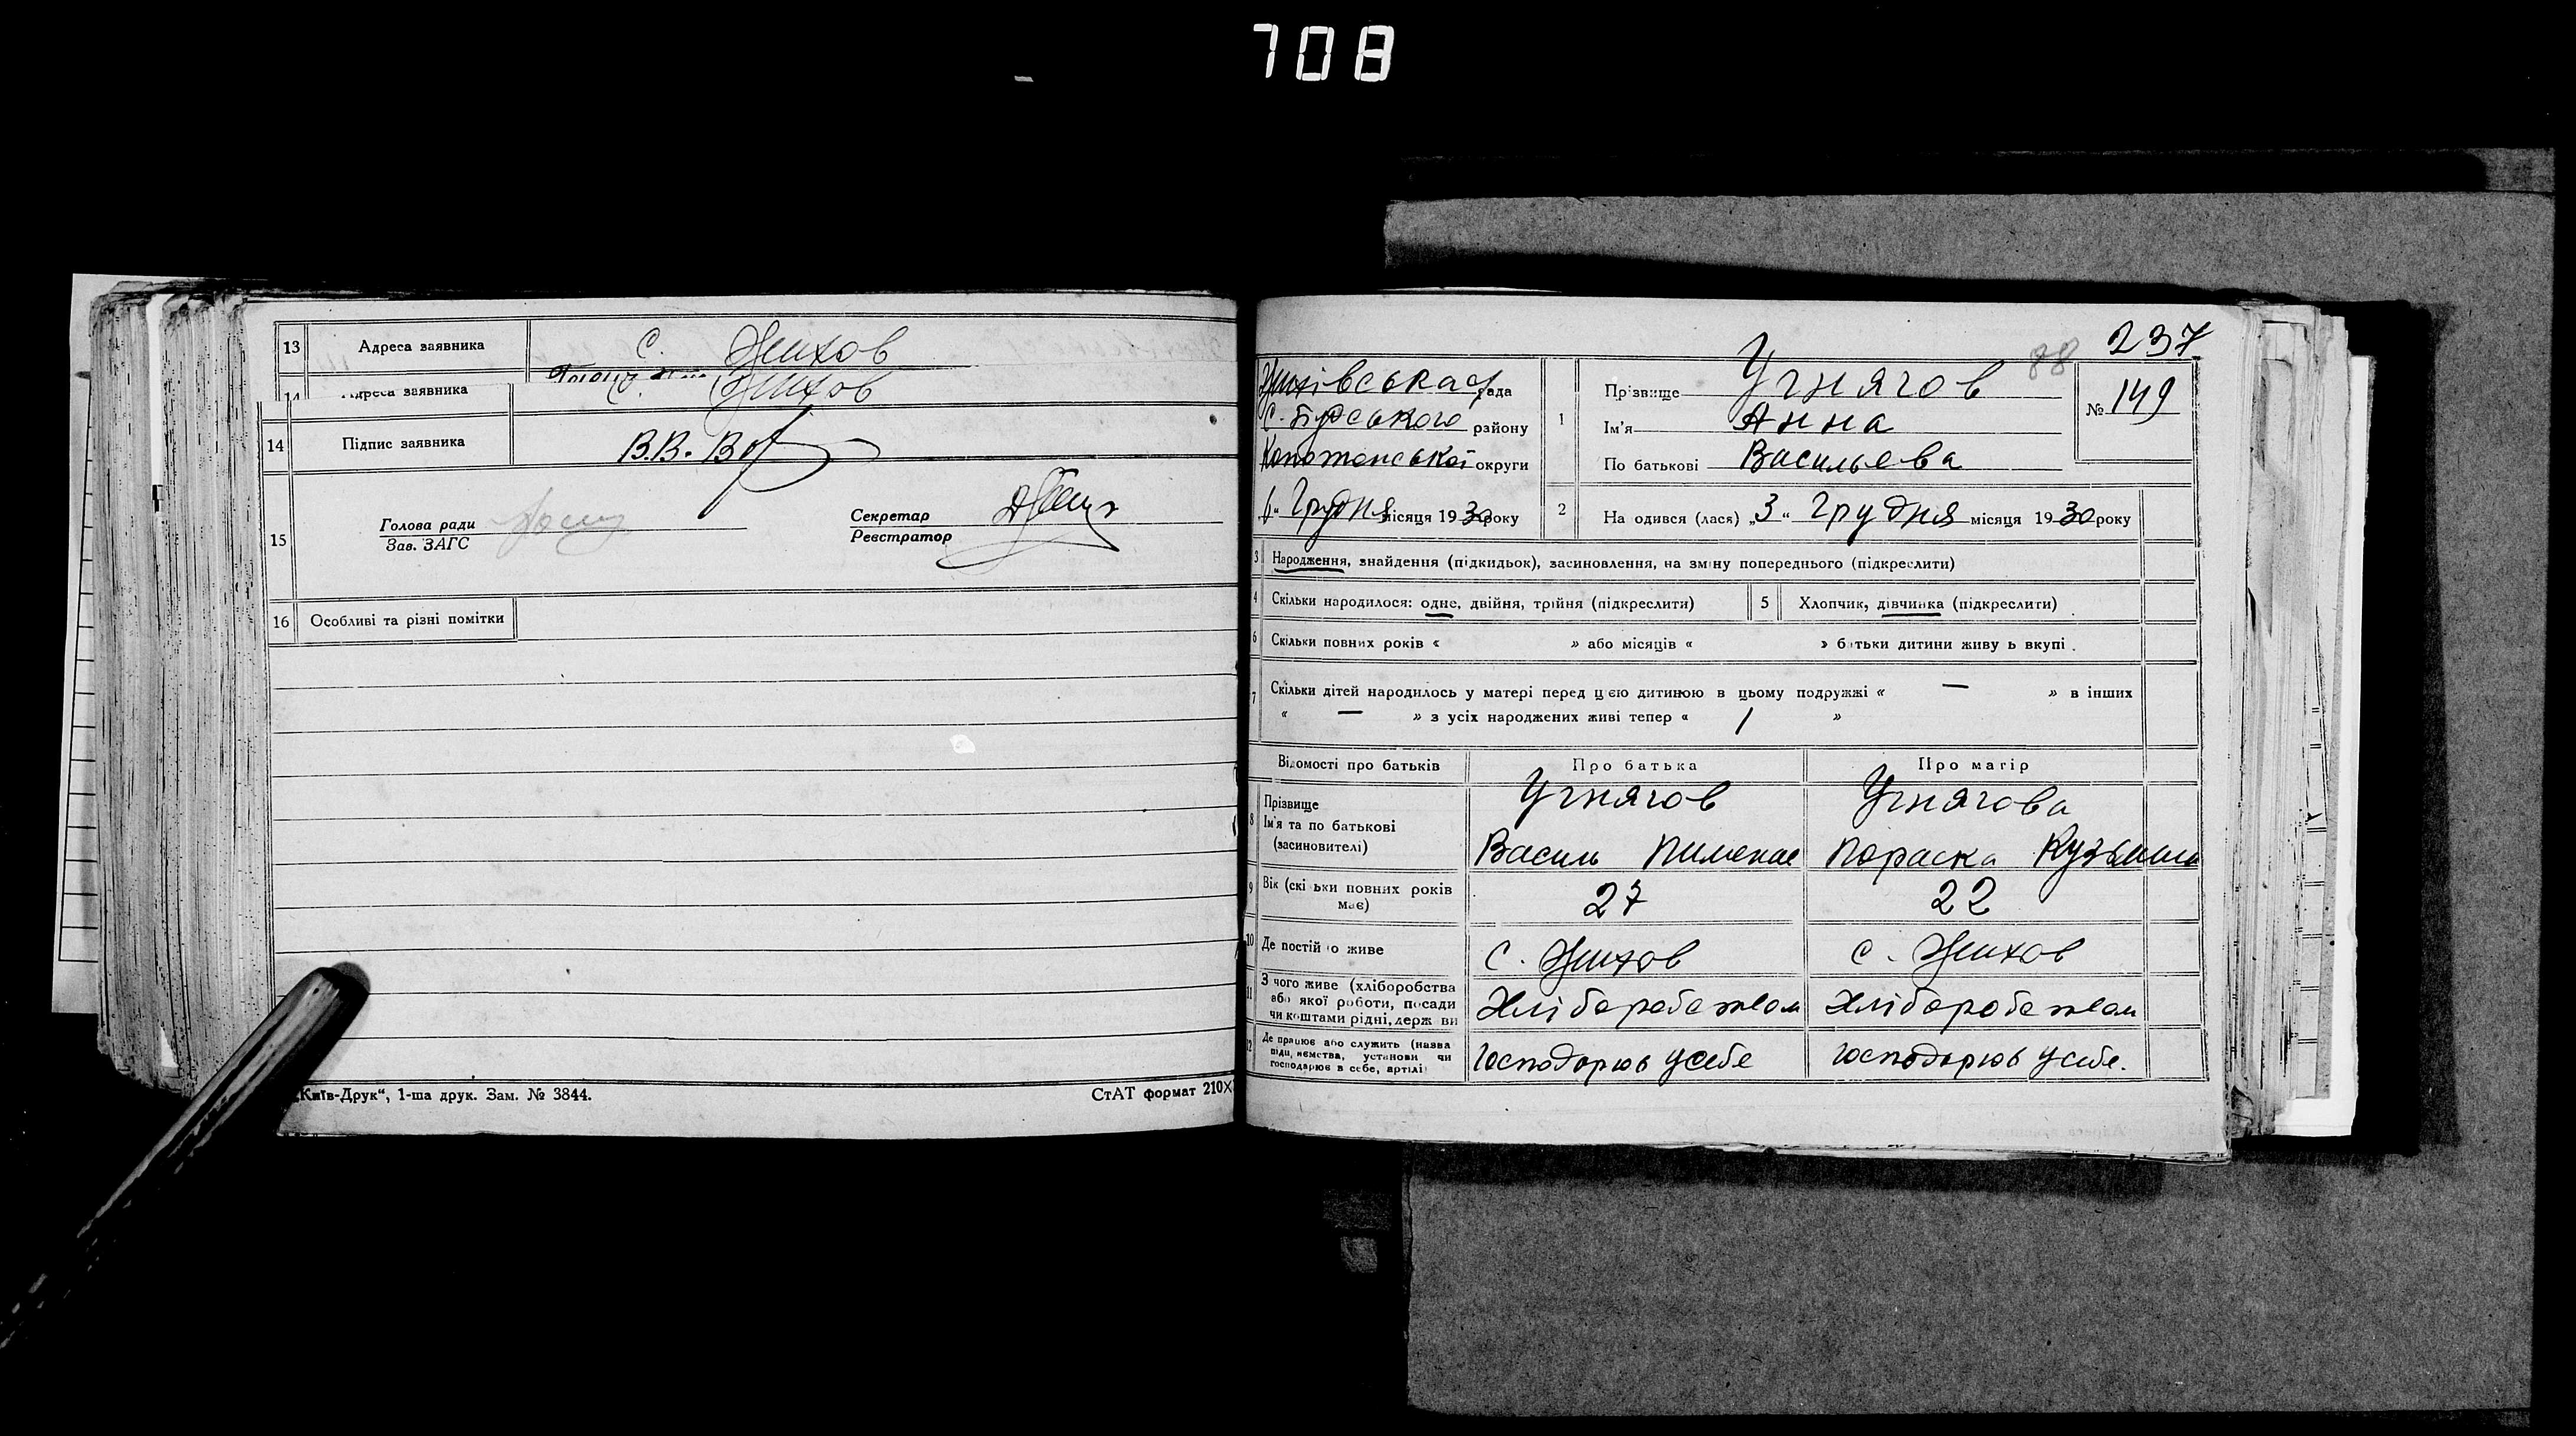 708
13 Адреса заявника с. Жихов
14 Адреса заявника с. Жихов
14 Підпис заявника В.В.
15 Голова ради Секретар
Зав. ЗАГС Реєстратор
16 Особливі та різні помітки
„Київ-Друк“, 1-ша друк. Зам. № 3844. СтАТ формат 210×
237
88
Жихівська рада
С-Будського району
Конотопської округи
6 " Грудня місяця 1930 року
1 Прізвище Угнягов
Ім'я Анна
По батькові Васильева
№ 149
2 На одився (лася) „3“ Грудня місяця 1930 року
3 Народження, знайдення (підкидьок), засиновлення, на зміну попереднього (підкреслити)
4 Скільки народилося: одне, двійня, трійня (підкреслити) 5 Хлопчик, дівчинка (підкреслити)
6 Скільки повних років « » або місяців « » б тьки дитини живу ь вкупі.
7 Скільки дітей народилось у матері перед цією дитиною в цьому подружжі « — » в інших
« — » з усіх народжених живі тепер « 1 »
Відомості про батьків Про батька Про матір
8 Прізвище Угнягов Угнягова
Ім'я та по батькові
(засиновителі) Василь Пименов Параска
9 Вік (скі ьки повних років 27 22
має)
10 Де постій о живе с. Жихов с. Жихов
11 З чого живе (хліборобства
або якої роботи, посади Хліборобством Хліборобством
чи коштами рідні, держ ви
12 Де працює або служить (назва
підп иємства, установи чи Господорює у себе Господорює у себе.
господарює в себе, артілі